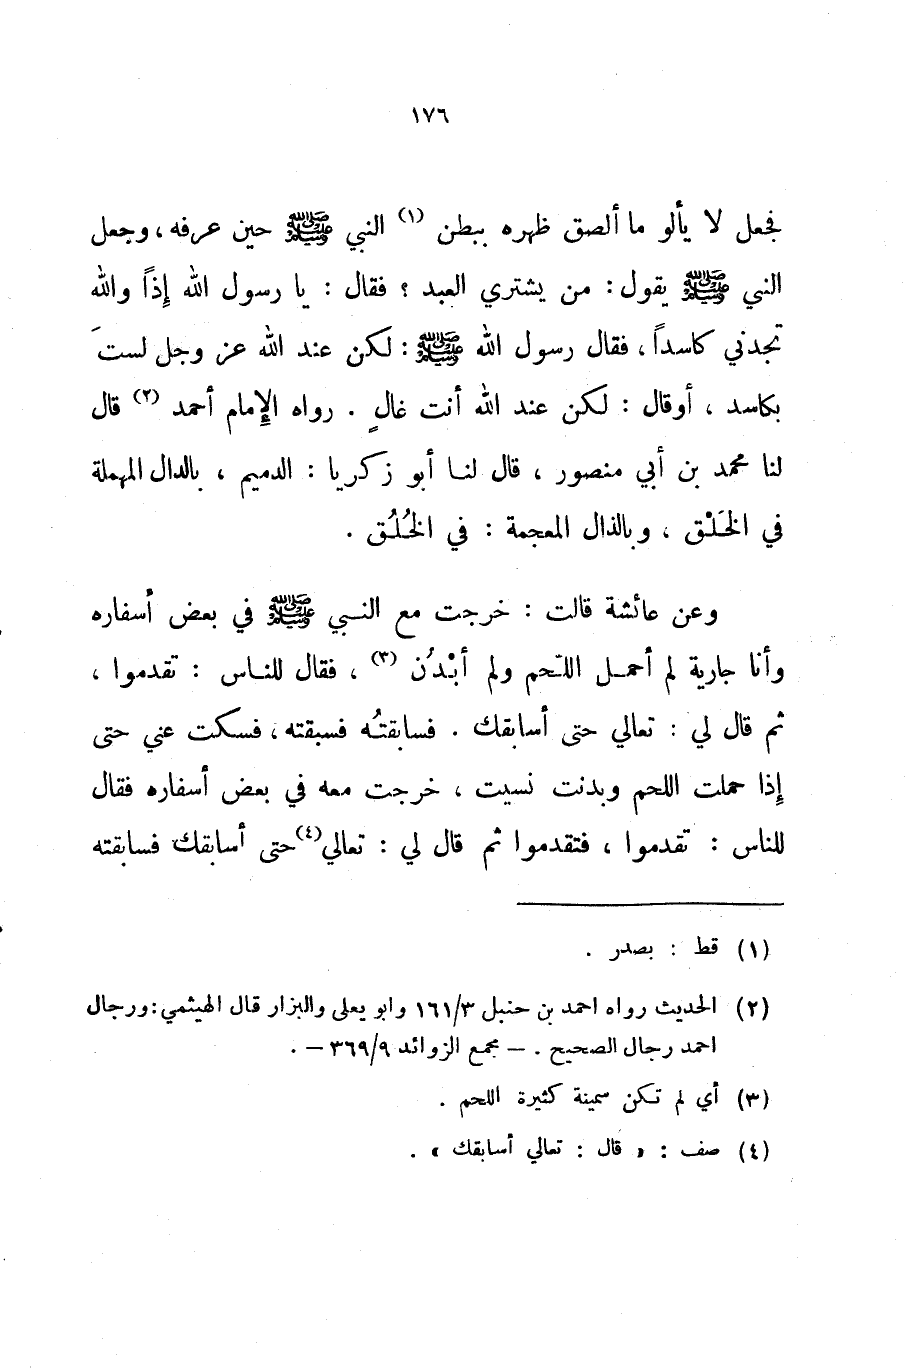 ١٧٦
فجعل لا يألو ما ألصق ظهره ببطن (١) النبي ﷺ حين عرفه ، وجعل
النبي ﷺ يقول : من يشتري العبد ؟ فقال : يا رسول الله إذاً والله
تجدني كاسداً ، فقال رسول الله ﷺ : لكن عند الله عز وجل لستَ
بكاسد ، أوقال : لكن عند الله أنت غالٍ . رواه الإمام أحمد (٢) قال
لنا محمد بن أبي منصور ، قال لنا أبو زكريا : الدميم ، بالدال المهملة
في الخَلْق ، وبالذال المعجمة : في الخُلُق .
وعن عائشة قالت : خرجت مع النبي ﷺ في بعض أسفاره
وأنا جارية لم أحمل اللحم ولم أبْدُن (٣) ، فقال للناس : تقدموا ،
ثم قال لي : تعالي حتى أسابقك . فسابقتُه فسبقته ، فسكت عني حتى
إذا حملت اللحم وبدنت نسيت ، خرجت معه في بعض أسفاره فقال
للناس : تقدموا ، فتقدموا ثم قال لي : تعالي (٤) حتى أسابقك فسابقته
(١) قط : بصدر .
(٢) الحديث رواه احمد بن حنبل ١٦١/٣ وابو يعلى والبزار قال الهيثمي : ورجال
احمد رجال الصحيح . – مجمع الزوائد ٣٦٩/٩ – .
(٣) أي لم تكن سمينة كثيرة اللحم .
(٤) صف : « قال : تعالي أسابقك » .